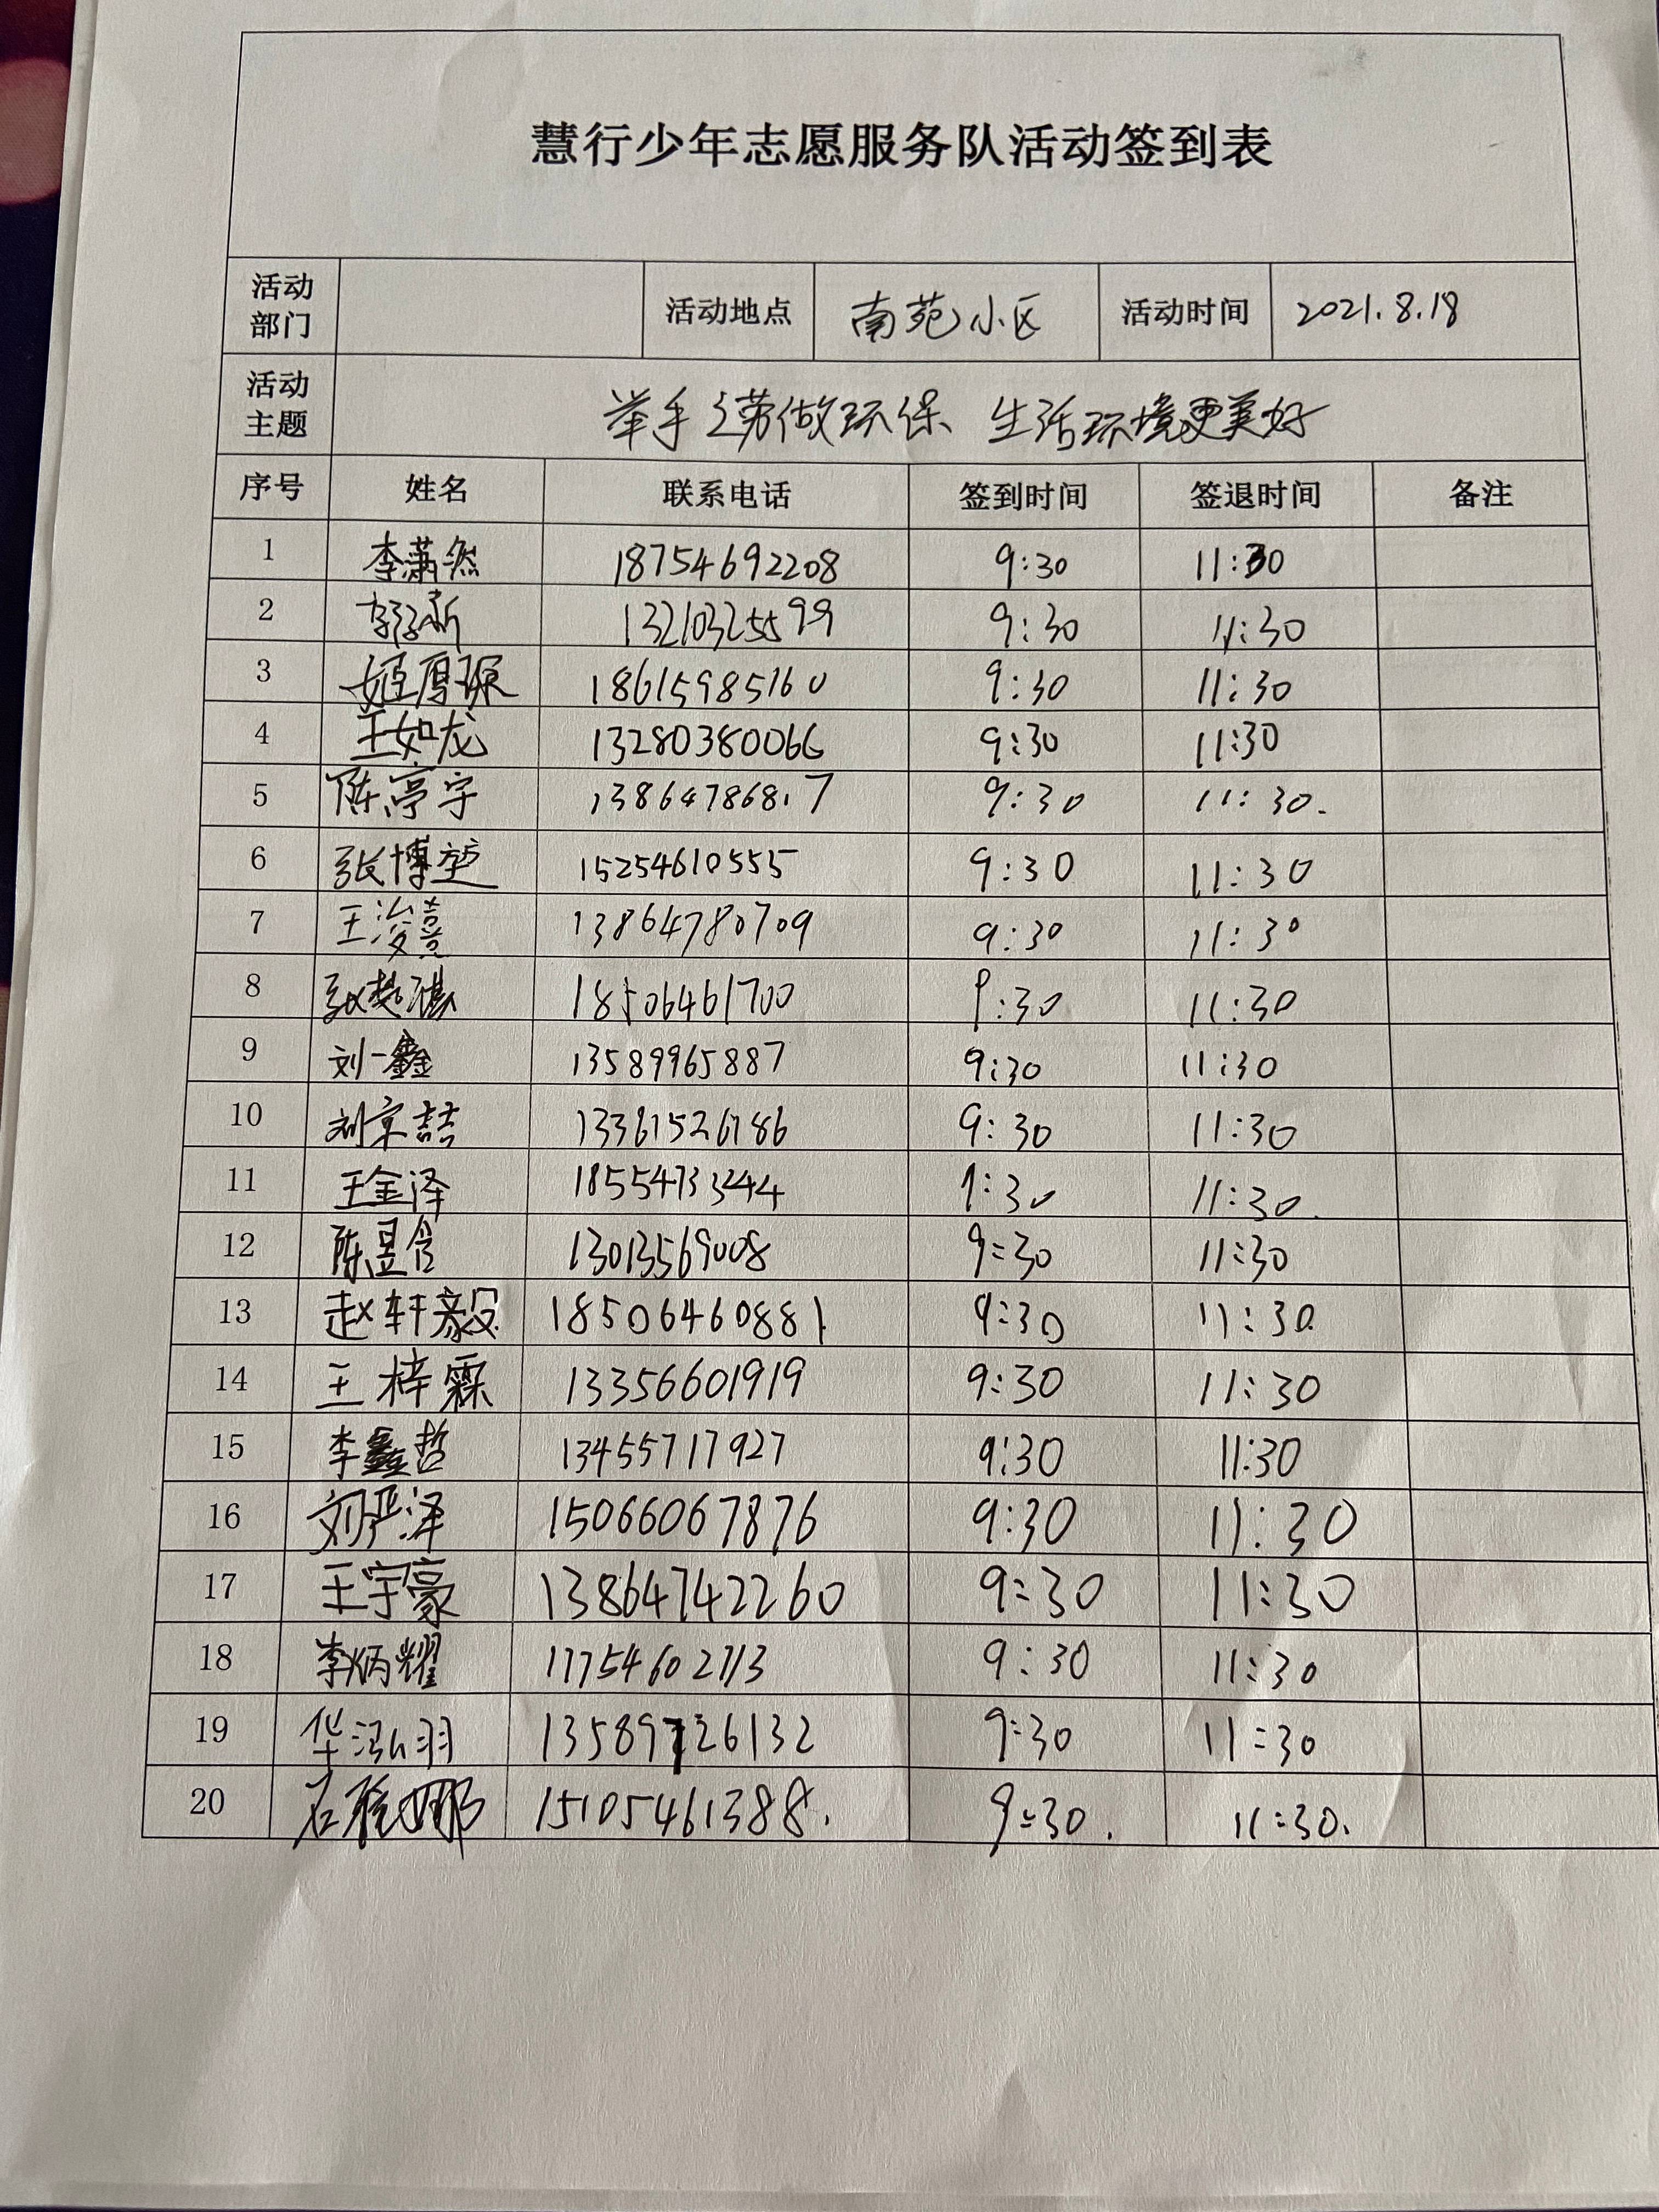 慧行少年志愿服务队活动签到表
活动部门 活动地点 南苑小区 活动时间 2021.8.18
活动主题 举手之劳做环保 生活环境更美好
序号 姓名 联系电话 签到时间 签退时间 备注
1 李潇然 18754692208 9:30 11:30
2 13210325599 9:30 11:30
3 姬厚源 18615985160 9:30 11:30
4 王如龙 13280380066 9:30 11:30
5 陈亭宇 9:30 11:30.
6 张博堃 15254610555 9:30 11:30
7 王浚熹 13864780709 9:30 11:30
8 18506461700 9:30 11:30
9 刘一鑫 13589965887 9:30 11:30
10 刘京喆 13361526786 9:30 11:30
11 王金泽 18554733244 9:30 11:30.
12 陈昱含 13013569008 9:30 11:30
13 赵轩毅 18506460881 9:30 11:30.
14 王梓霖 13356601919 9:30 11:30
15 李鑫哲 13455717927 9:30 11:30
16 刘严泽 15066067876 9:30 11:30
17 王宇豪 13864742260 9:30 11:30
18 李炳耀 17754602713 9:30 11:30
19 华泓羽 13589726132 9:30 11:30
20 15105461388. 9:30. 11:30.